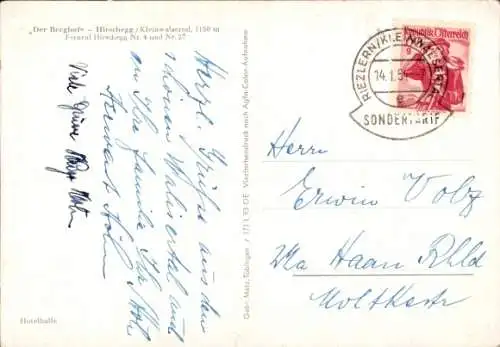 „Der Berghof" - Hirschegg / Kleinwalsertal, 1150 m
Fernruf Hirschegg Nr. 4 und Nr. 27
Herzl. Grüße aus dem
schönen Walsertal auch
an Ihre Familie Ihr
Viele Grüße
Hotelhalle
Gebr. Metz, Tübingen
Vierfarbendruck nach Agfa-Color-Aufnahme
Republik Österreich
RIEZLERN (KLEINWALSERTAL)
14.1.5
e
SONDERTARIF
Herrn
Erwin Volz
Haan Rhld
Moltkestr